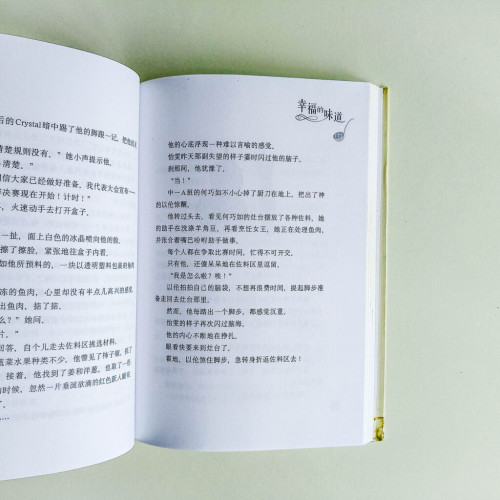 后的Crystal暗中踢了他的脚跟一记，把他的
清楚规则没有。”她小声提示他。
清楚。”
相信大家已经做好准备。我代表大会宣布——
决赛现在开始！计时！”
，火速动手去打开盒子。
一扯，面上白色的冰晶喷向他的脸。
擦了擦脸，紧张地往盒子内看。
如他所预料的，一块以透明塑料包裹着
冻的鱼肉，心里却没有半点儿高兴的感觉。
出鱼肉，掂了掂。
么？”她问。
片。”
回答，自个儿走去佐料区挑选材料。
蔬菜水果种类不少。他瞥见了柿子椒，抓了
，接着，他找到了姜和洋葱，也取了一些
的时候，忽然一片垂涎欲滴的红色新入眼帘
……
幸福的味道
他的心底浮现一种难以言喻的感觉。
怡雯昨天那副失望的样子霎时闪过他的脑子。
刹那间，他犹豫了。
“当！”
中一A班的何巧如不小心掉了厨刀在地上，把出了神
的以伦惊醒。
他转过头去，看见何巧如的灶台摆放了各种佐料。她
的助手在洗涤羊角豆，再看烹饪女王，她正在处理鱼肉，
并张合着嘴巴吩咐助手做事。
每个人都在争取出赛时间，忙得不可开交。
只有他，还傻呆呆地在佐料区里逗留。
“我是怎么啦？唉！”
以伦拍拍自己的脑袋，不想再浪费时间，提起脚步准
备走回去灶台那里。
然而，他每踏出一个脚步，都感觉沉重。
怡雯的样子再次闪过脑海。
他的内心不断地在挣扎。
眼看快要来到灶台了。
蓦地，以伦煞住脚步，急转身折返佐料区去！